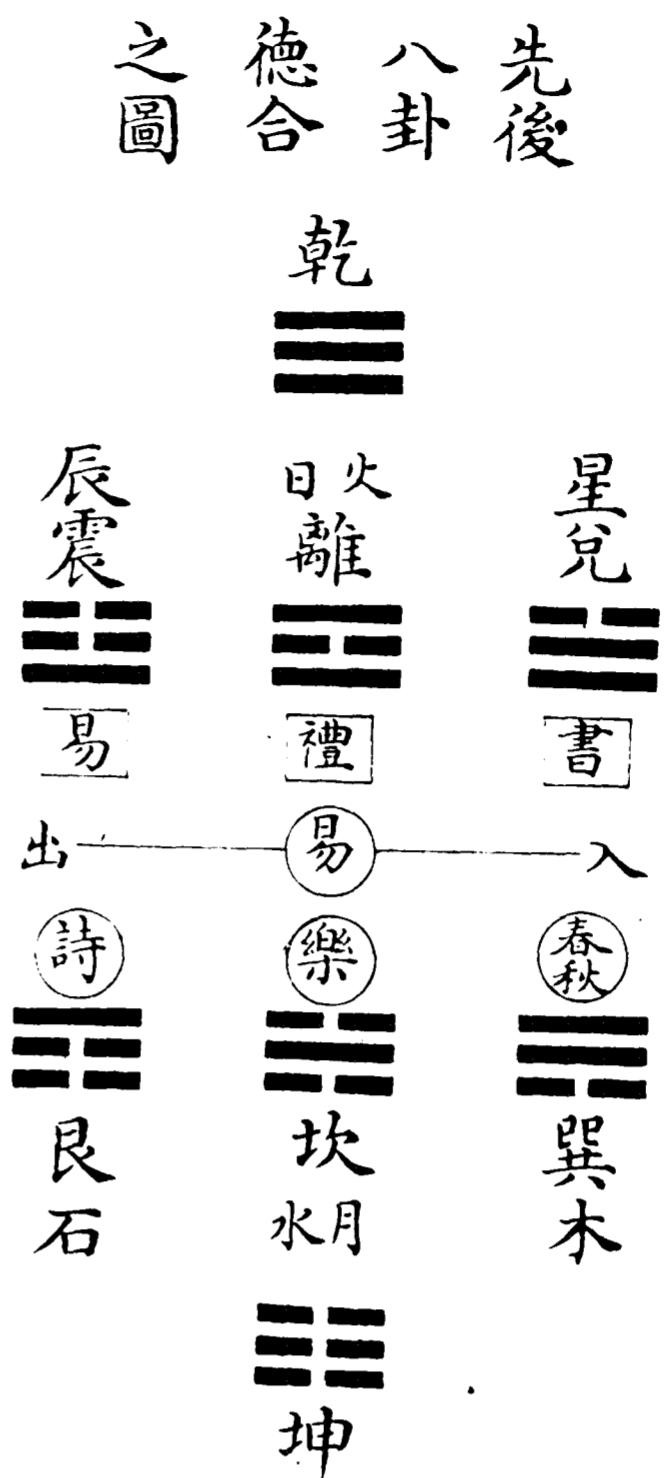 先後
八卦
德合
之圖
乾
星兌
火日
離
辰震
書
禮
易
入
易
出
春秋
樂
詩
巽木
坎
月水
艮石
坤